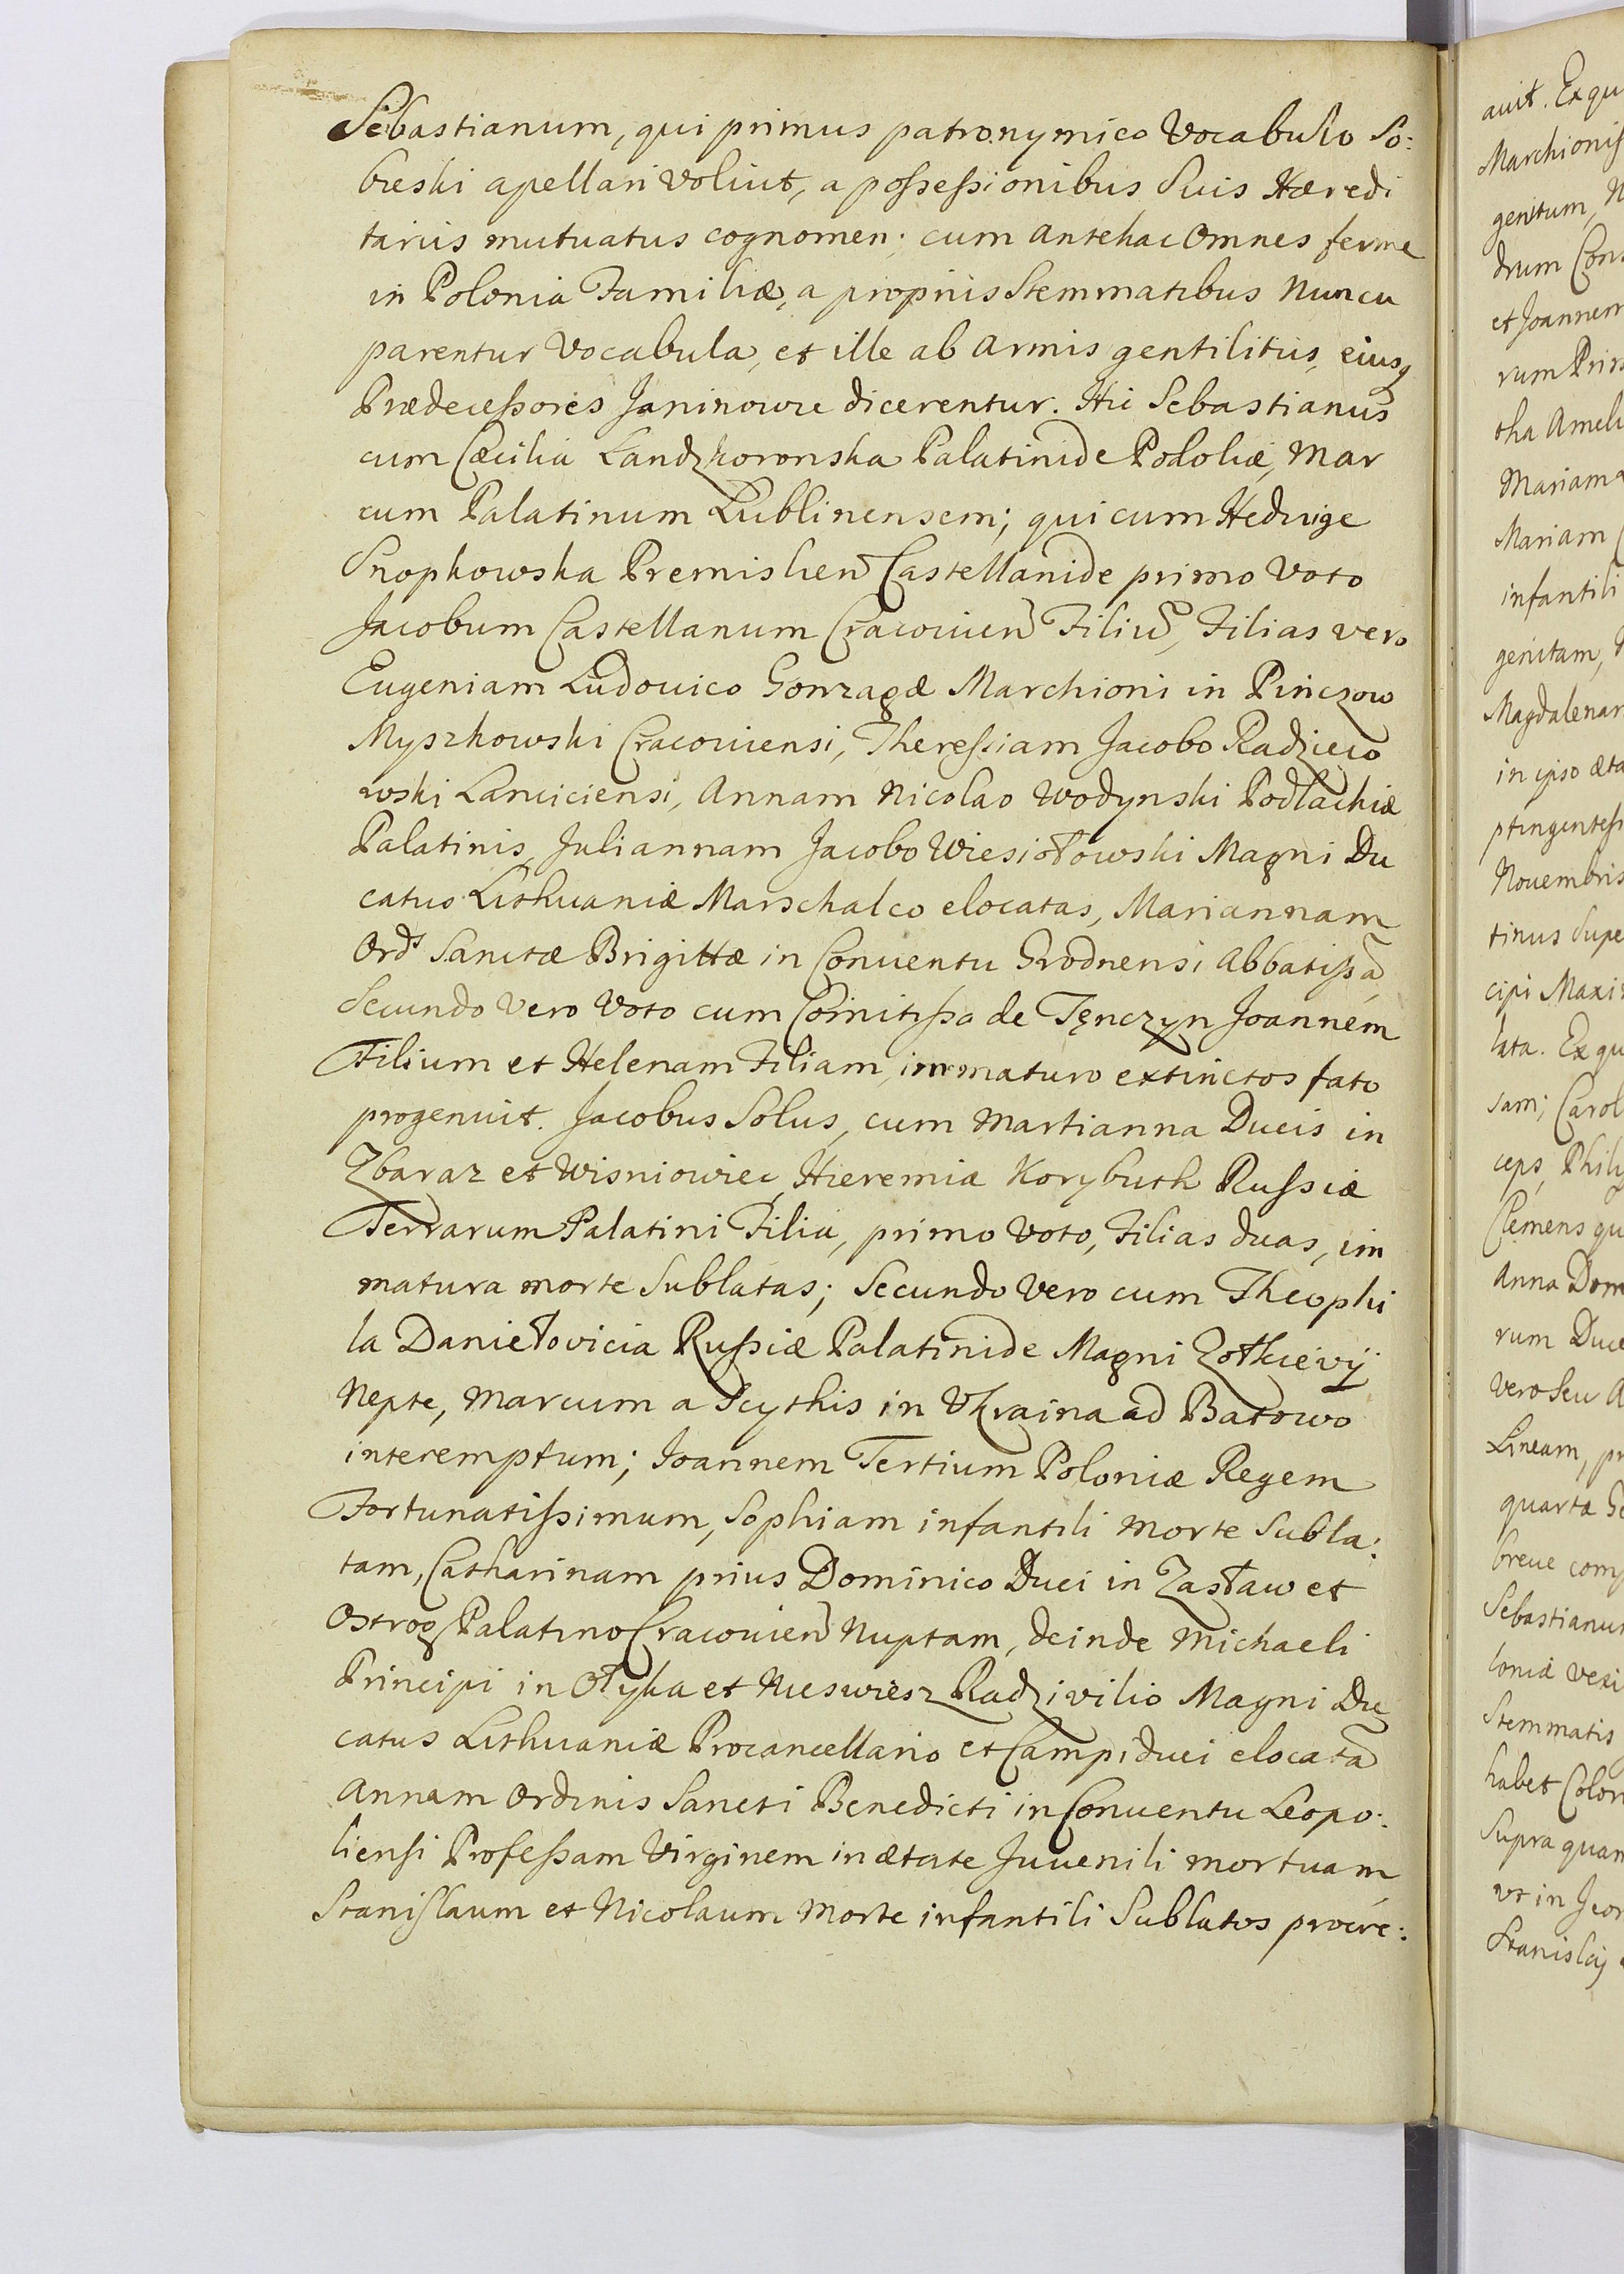 Sebastianum, qui primus patronymico Vocabulo So:
bieski apellari voluit, a possessionibus Suis Hæredi
tariis mutuatus cognomen; cum antehac Omnes ferme
in Polonia Familiæ, a propriis Stemmatibus Nuncu
parentur Vocabula, et ille ab Armis gentilitiis, eiusq
Prædecessores Janinowie dicerentur. Hic Sebastianus
cum Cæcilia Landzkoronska Palatinide Podoliæ, Mar
cum Palatinum Lublinensem; qui cum Hedvige
Snopkowska Premislien Castellanide primo Voto
Jacobum Castellanum Cracovien Filiu, Filias vero
Eugeniam Ludovico Gonzagæ Marchioni in Pinczow
Myszkowski Cracoviensi, Theressiam Jacobo Radzieio
wski Lanciciensi, Annam Nicolao Wodynski Podlachiæ
Palatinis, Juliannam Jacobo Wiesiołowski Magni Du
catus Lithuaniæ Marschalco elocatas, Mariannam
Ords Sanctæ Brigittæ in Conventu Grodnensi Abbatissã,
Secundo Vero Voto cum Comitissa de Tęnczyn Joannem
Filium et Helenam Filiam, immaturo extinctos fato
progenuit. Jacobus Solus, cum Martianna Ducis in
Zbaraz et Wisniowiec, Hieremiæ Korybuth Russiæ
Terrarum Palatini Filia, primo Voto, Filias duas, im
matura morte Sublatas; Secundo Vero cum Theophi
la Daniełovicia Russiæ Palatinide Magni Zołkievij
Nepte, Marcum a Scythis in Ukraina ad Batowo
interemptum; Joannem Tertium Poloniæ Regem
Fortunatissimum, Sophiam infantili Morte Subla:
tam, Catharinam prius Dominico Duci in Zasław et
Ostrog Palatino Cracovien Nuptam, deinde Michaeli
Principi in Ołyka et Nieswiesz Radzivilio Magni Du
catus Lithuaniæ Procancellario et Campiduci elocatã
Annam Ordinis Sancti Benedicti in Conventu Leopo:
liensi Professam Virginem in ætate Juvenili mortuam,
Stanislaum et Nicolaum Morte infantili Sublatos procre:
avit. Ex qu
Marchionis
genitum, N
drum Cons
et Joannem
rum Prin
Mariam
Mariam C
infantili
genitam,
Magdalenam
in ipso æta
ptingentess
Novembris
tinus Supe
cipi Maxi
lata. Ex qu
sam; Carol
ceps, Phili
Clemens qu
Anna Dom
rum Duc
vero Seu A
Lineam, pr
quarta Ge
breve comp
Sebastianu
loniæ vexi
Stemmatis
habet Colon
Supra quam
vt in
Stanislaj